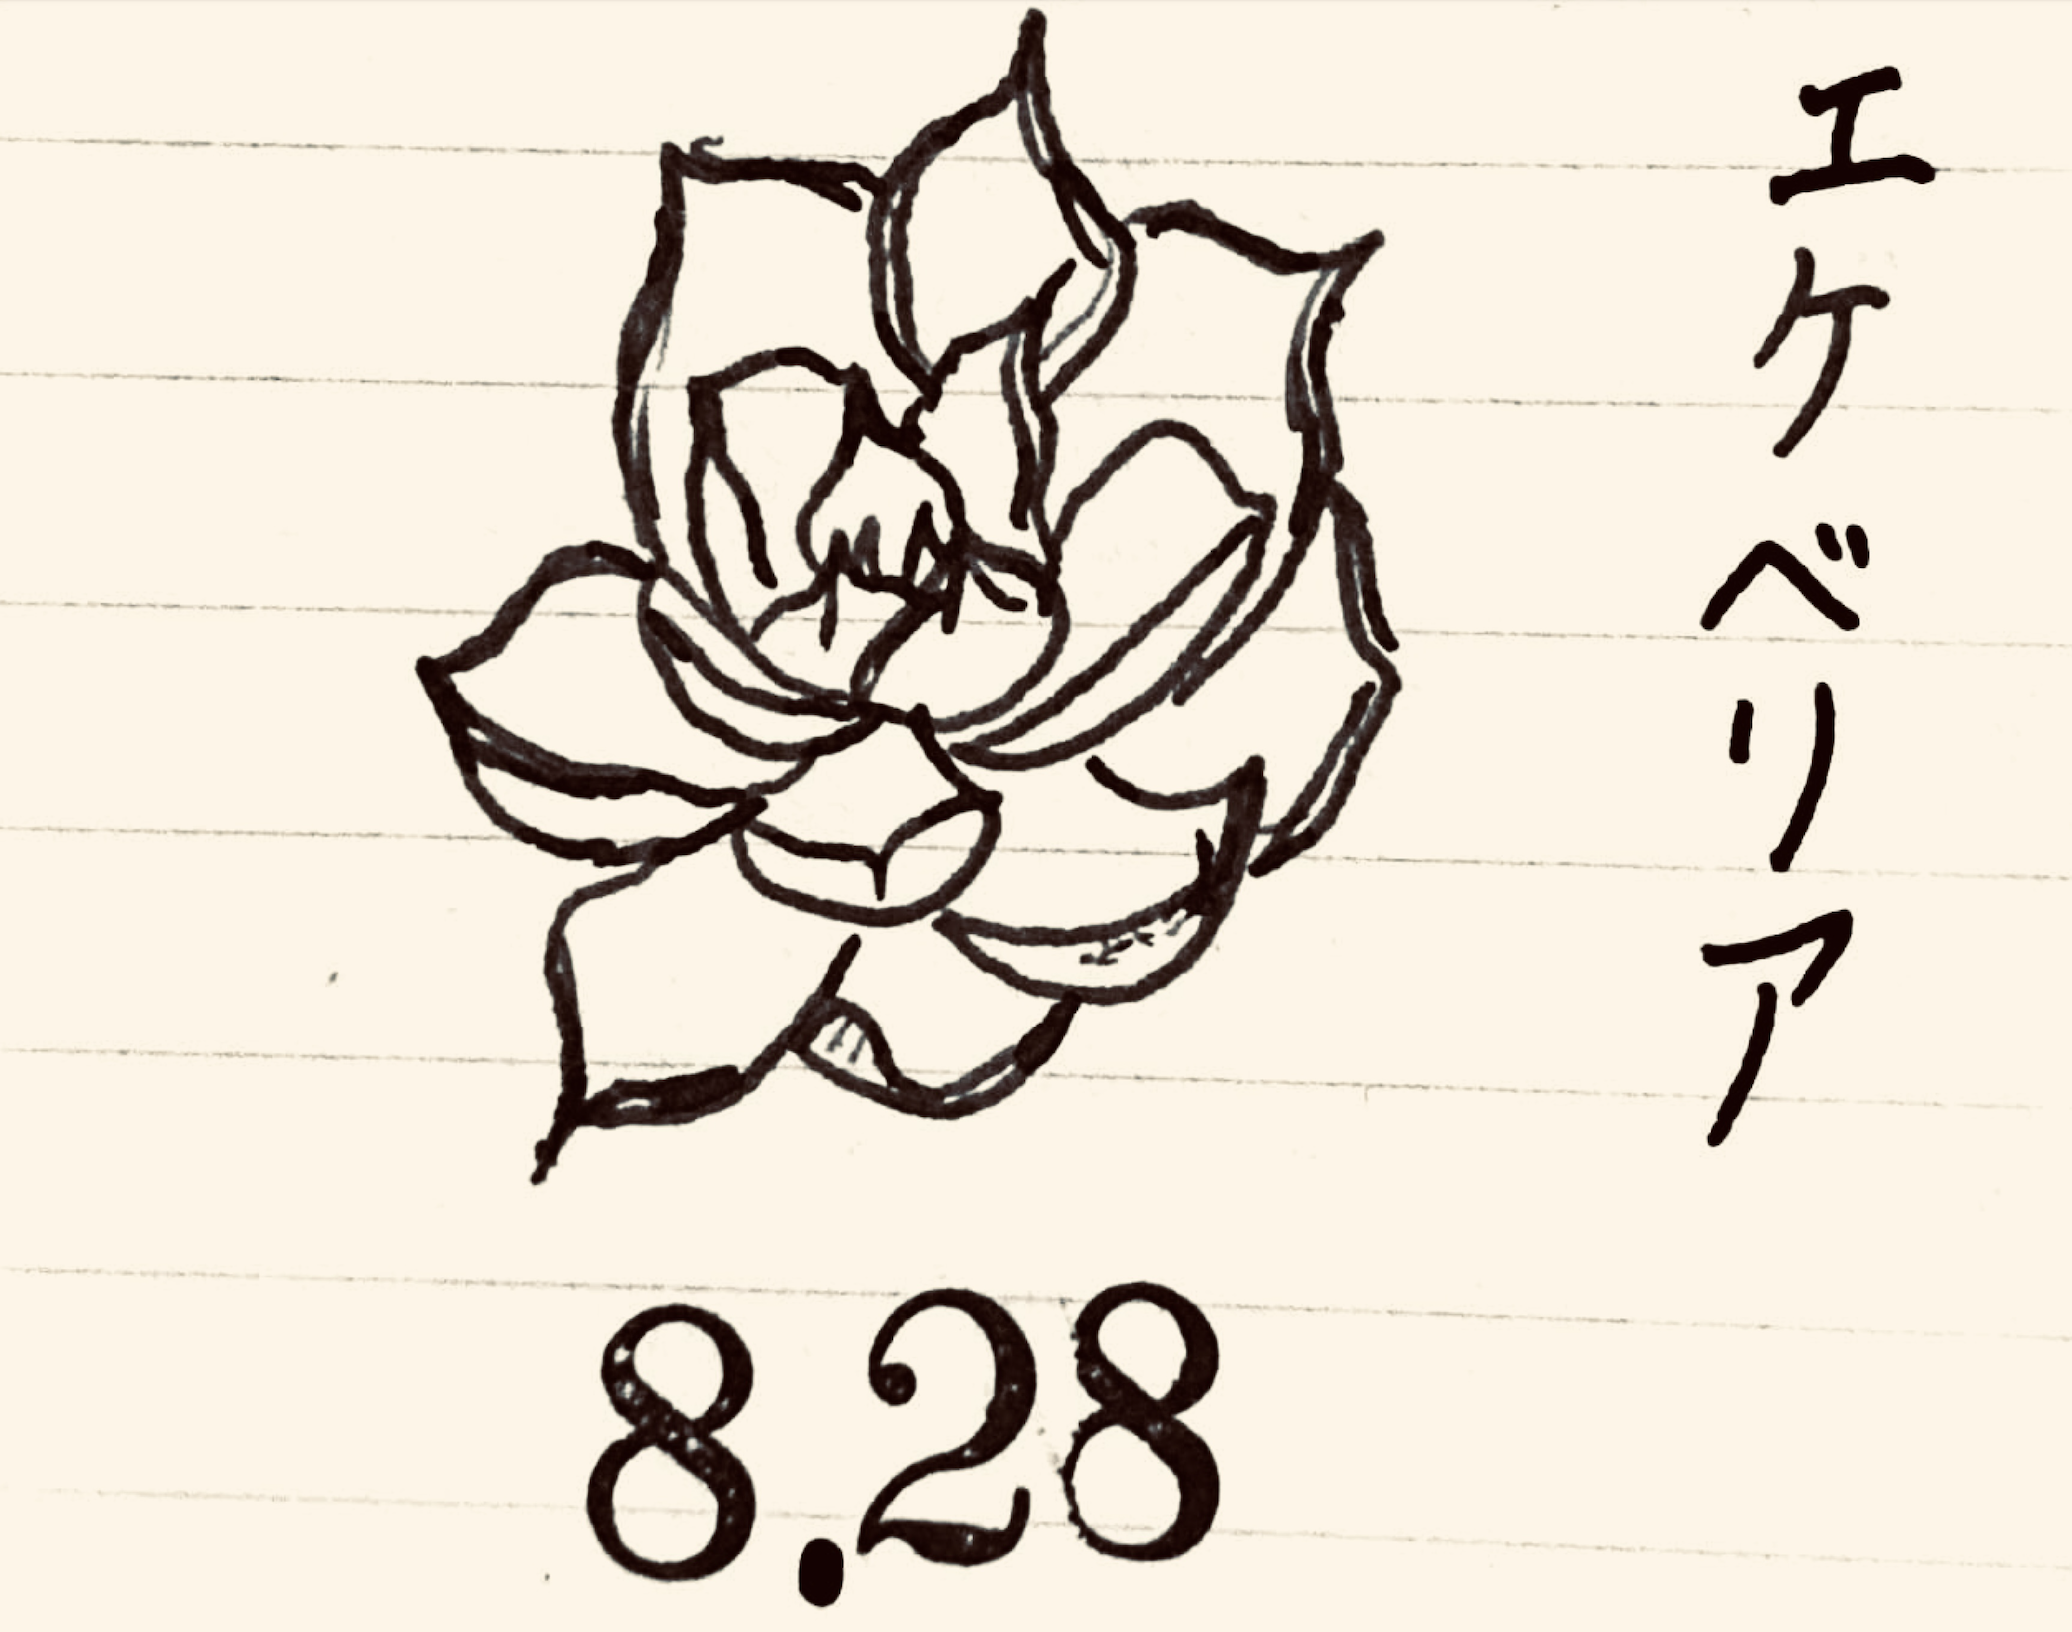 エケベリア
8.28